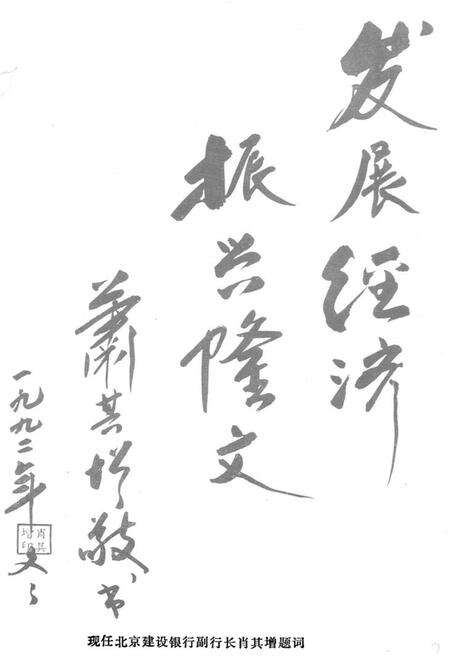 发展經济
振兴隆文
蕭其增敬书
一九九二年冬
肖其增印
现任北京建设银行副行长肖其增题词